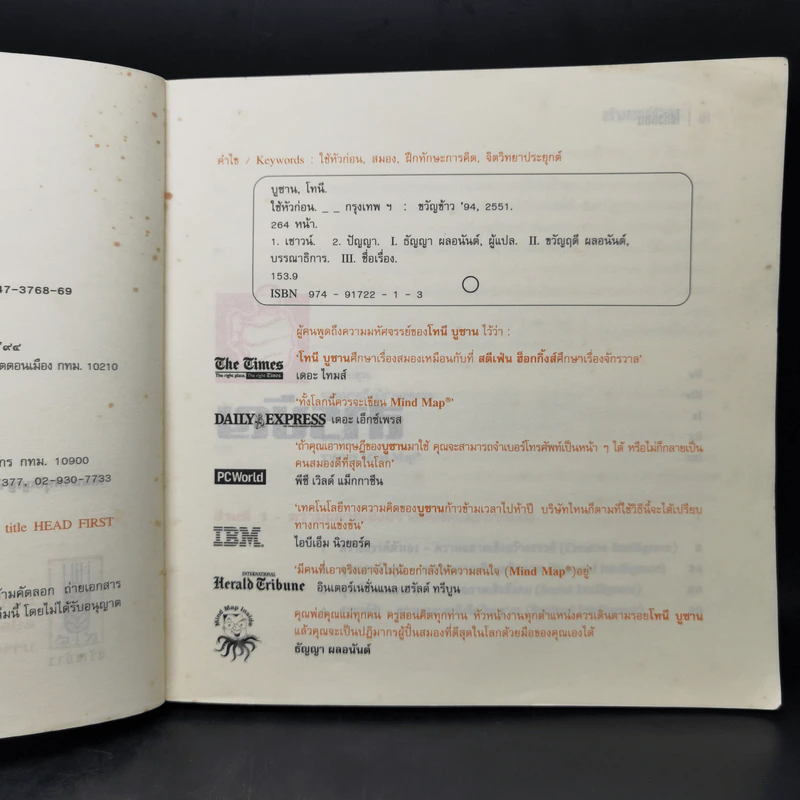 47-3768-69
ตดอนเมือง กทม. 10210
กร กทม. 10900
7377, 02-930-7733
title HEAD FIRST
ามคัดลอก ถ่ายเอกสาร
มนี้ โดยไม่ได้รับอนุญาต
คำไข / Keywords : ใช้หัวก่อน, สมอง, ฝึกทักษะการคิด, จิตวิทยาประยุกต์
บูซาน, โทนี.
ใช้หัวก่อน. _ _ กรุงเทพ ฯ : ขวัญข้าว '94, 2551.
264 หน้า.
1. เชาวน์. 2. ปัญญา. I. ธัญญา ผลอนันต์, ผู้แปล. II. ขวัญฤดี ผลอนันต์,
บรรณาธิการ. III. ชื่อเรื่อง.
153.9
ISBN 974 - 91722 - 1 - 3
ผู้คนพูดถึงความมหัศจรรย์ของโทนี บูซาน ไว้ว่า :
The Times
'โทนี บูซานศึกษาเรื่องสมองเหมือนกับที่ สตีเฟ่น ฮ็อกกิ้งส์ศึกษาเรื่องจักรวาล'
เดอะ ไทมส์
'ทั้งโลกนี้ควรจะเขียน Mind Map®'
DAILY EXPRESS เดอะ เอ็กซ์เพรส
'ถ้าคุณเอาทฤษฎีของบูซานมาใช้ คุณจะสามารถจำเบอร์โทรศัพท์เป็นหน้า ๆ ได้ หรือไม่ก็กลายเป็น
คนสมองดีที่สุดในโลก'
PCWorld พีซี เวิลด์ แม็กกาซีน
'เทคโนโลยีทางความคิดของบูซานก้าวข้ามเวลาไปห้าปี บริษัทไหนก็ตามที่ใช้วิธีนี้จะได้เปรียบ
ทางการแข่งขัน'
IBM ไอบีเอ็ม นิวยอร์ค
'มีคนที่เอาจริงเอาจังไม่น้อยกำลังให้ความสนใจ (Mind Map®)อยู่'
INTERNATIONAL
Herald Tribune อินเตอร์เนชั่นแนล เฮรัลด์ ทรีบูน
Mind Map Inside
คุณพ่อคุณแม่ทุกคน ครูสอนคิดทุกท่าน หัวหน้างานทุกตำแหน่งควรเดินตามรอยโทนี บูซาน
แล้วคุณจะเป็นปฏิมากรผู้ปั้นสมองที่ดีที่สุดในโลกด้วยมือของคุณเองได้
ธัญญา ผลอนันต์